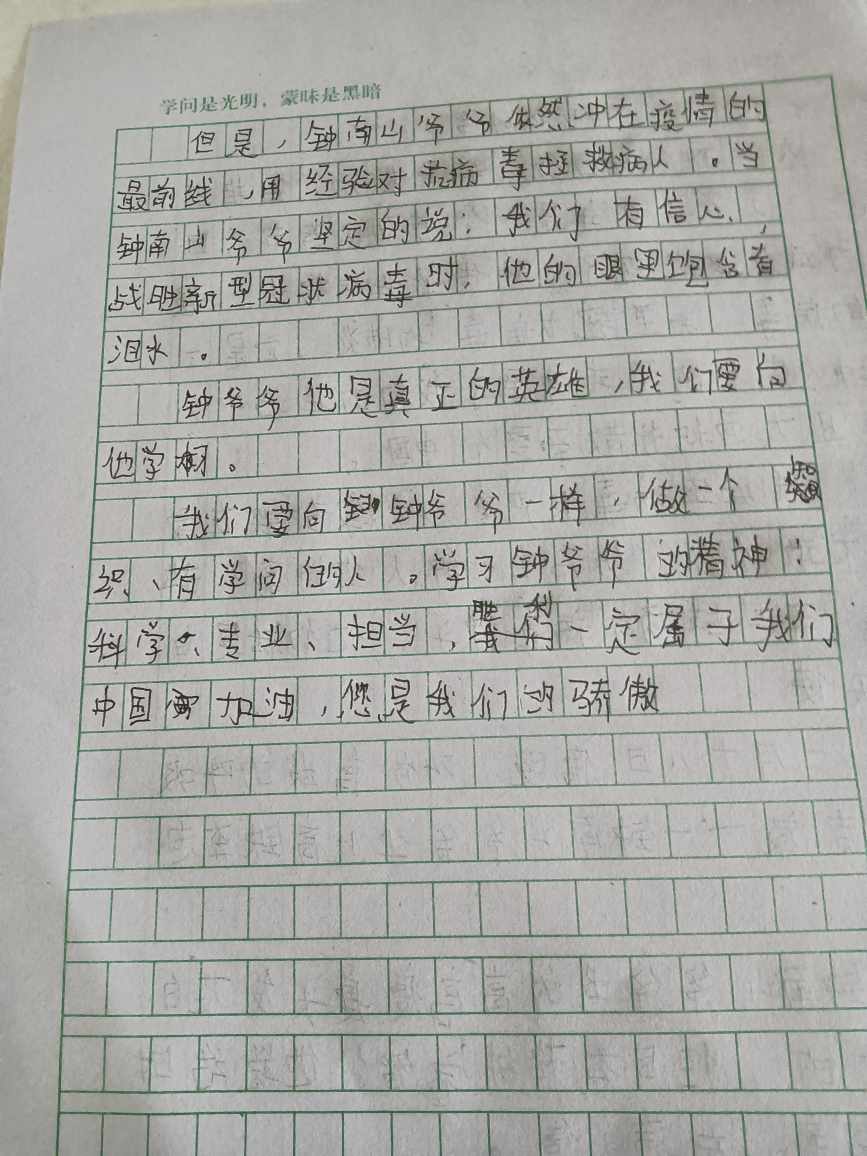 学问是光明，蒙昧是黑暗
但是，钟南山爷爷依然冲在疫情的
最前线，用经验对抗病毒拯救病人。当
钟南山爷爷坚定的说：我们有信心，
战胜新型冠状病毒时，他的眼里饱含着
泪水。
钟爷爷他是真正的英雄，我们要向
他学习。
我们要向钟爷爷一样，做一个
识、有学问的人。学习钟爷爷的精神：
科学、专业、担当，胜利一定属于我们
中国加油，您是我们的骄傲